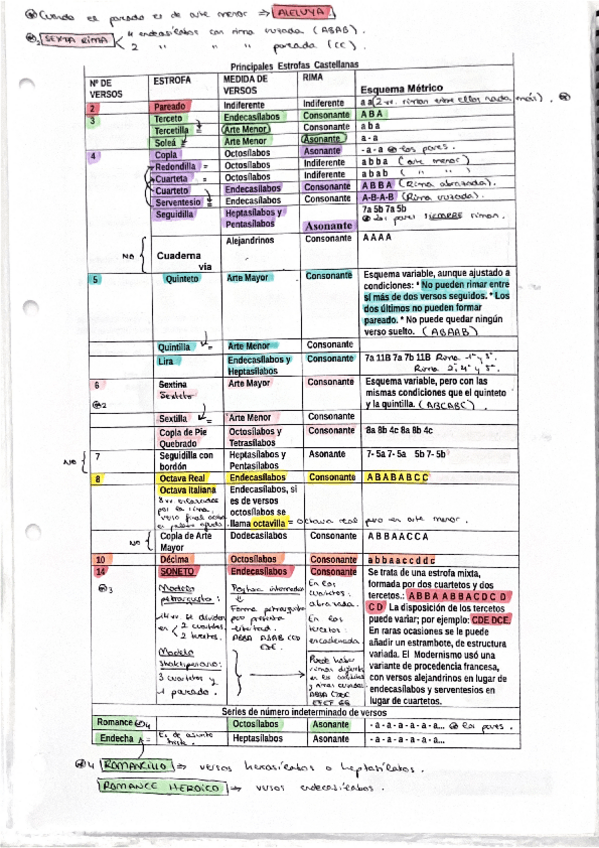 Cuando el pareado es de arte menor ⇒ ALELUYA.
SEXTA RIMA < 4 endecasílabos con rima cruzada (ABAB).
2 " " " pareada (CC).
Principales Estrofas Castellanas
Nº DE VERSOS ESTROFA MEDIDA DE VERSOS RIMA Esquema Métrico
2 Pareado Indiferente Indiferente a a (2 vv. riman entre ellos nada más).
3 Terceto Endecasílabos Consonante A B A
Tercetilla = Arte Menor Consonante a b a
Soleá = Arte Menor Asonante a - a
4 Copla Octosílabos Asonante - a - a los pares.
Redondilla = Octosílabos Indiferente a b b a (arte menor)
Cuarteta = Octosílabos Indiferente a b a b ( " " )
Cuarteto Endecasílabos Consonante A B B A (Rima abrazada).
Serventesio = Endecasílabos Consonante A-B-A-B (Rima cruzada).
Seguidilla Heptasílabos y Pentasílabos Asonante 7a 5b 7a 5b
Los pares SIEMPRE riman.
NO Cuaderna vía Alejandrinos Consonante A A A A
5 Quinteto Arte Mayor Consonante Esquema variable, aunque ajustado a
condiciones: * No pueden rimar entre
sí más de dos versos seguidos. * Los
dos últimos no pueden formar
pareado. * No puede quedar ningún
verso suelto. (ABAAB)
Quintilla = Arte Menor Consonante
Lira Endecasílabos y Heptasílabos Consonante 7a 11B 7a 7b 11B Rima -1º y 3º.
Rima 2º, 4º y 5º.
6 Sextina Arte Mayor Consonante Esquema variable, pero con las
2 Sexteto mismas condiciones que el quinteto
y la quintilla. (ABCABC).
Sextilla = Arte Menor Consonante
Copla de Pie Quebrado Octosílabos y Tetrasílabos Consonante 8a 8b 4c 8a 8b 4c
NO 7 Seguidilla con bordón Heptasílabos y Pentasílabos Asonante 7- 5a 7- 5a 5b 7- 5b
8 Octava Real Endecasílabos Consonante A B A B A B C C
Octava Italiana Endecasílabos, si
es de versos
octosílabos se
llama octavilla = octava real pero en arte menor.
por la rima,
verso final
NO Copla de Arte Mayor Dodecasílabos Consonante A B B A A C C A
10 Décima Octosílabos Consonante a b b a a c c d d c
14 SONETO Endecasílabos Consonante Se trata de una estrofa mixta,
formada por dos cuartetos y dos
tercetos.: ABBA ABBA CDC D
C D La disposición de los tercetos
puede variar; por ejemplo: CDE DCE.
En raras ocasiones se le puede
añadir un estrambote, de estructura
variada. El Modernismo usó una
variante de procedencia francesa,
con versos alejandrinos en lugar de
endecasílabos y serventesios en
lugar de cuartetos.
3 Modelo petrarquista:
14 vv. se dividen
en < 2 cuartetos,
2 tercetos.
Modelo
3 cuartetos y
1 pareado.
Forma petrarquista
En los
cuartetos:
abrazada.
En los
tercetos:
encadenada.
Puede haber
rimas
Series de número indeterminado de versos
Romance 4 Octosílabos Asonante - a - a - a - a - a... los pares.
Endecha = Es de asunto triste. Heptasílabos Asonante - a - a - a - a - a...
4 ROMANCILLO ⇒ versos hexasílabos o heptasílabos.
ROMANCE HEROICO ⇒ versos endecasílabos.